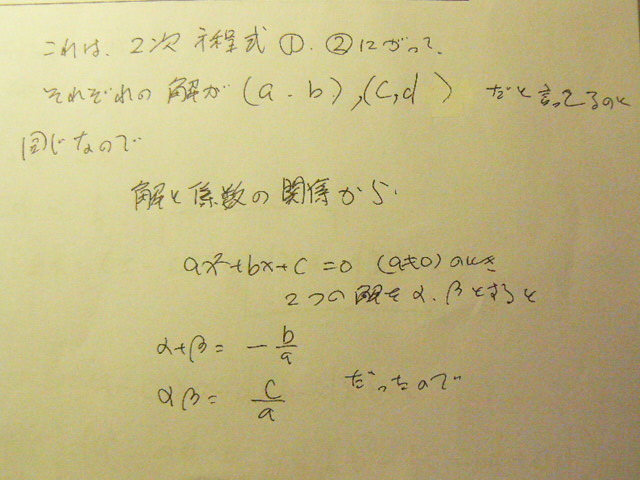 これは、2次方程式①.②にがって、
それぞれの解が(a.b),(c,d) だと言ってるのと
同じなので
解と係数の関係から.
ax²+bx+c=0 (a≠0)のとき
2つの解をα.βとすると
α+β= -b/a
αβ= c/a だったので